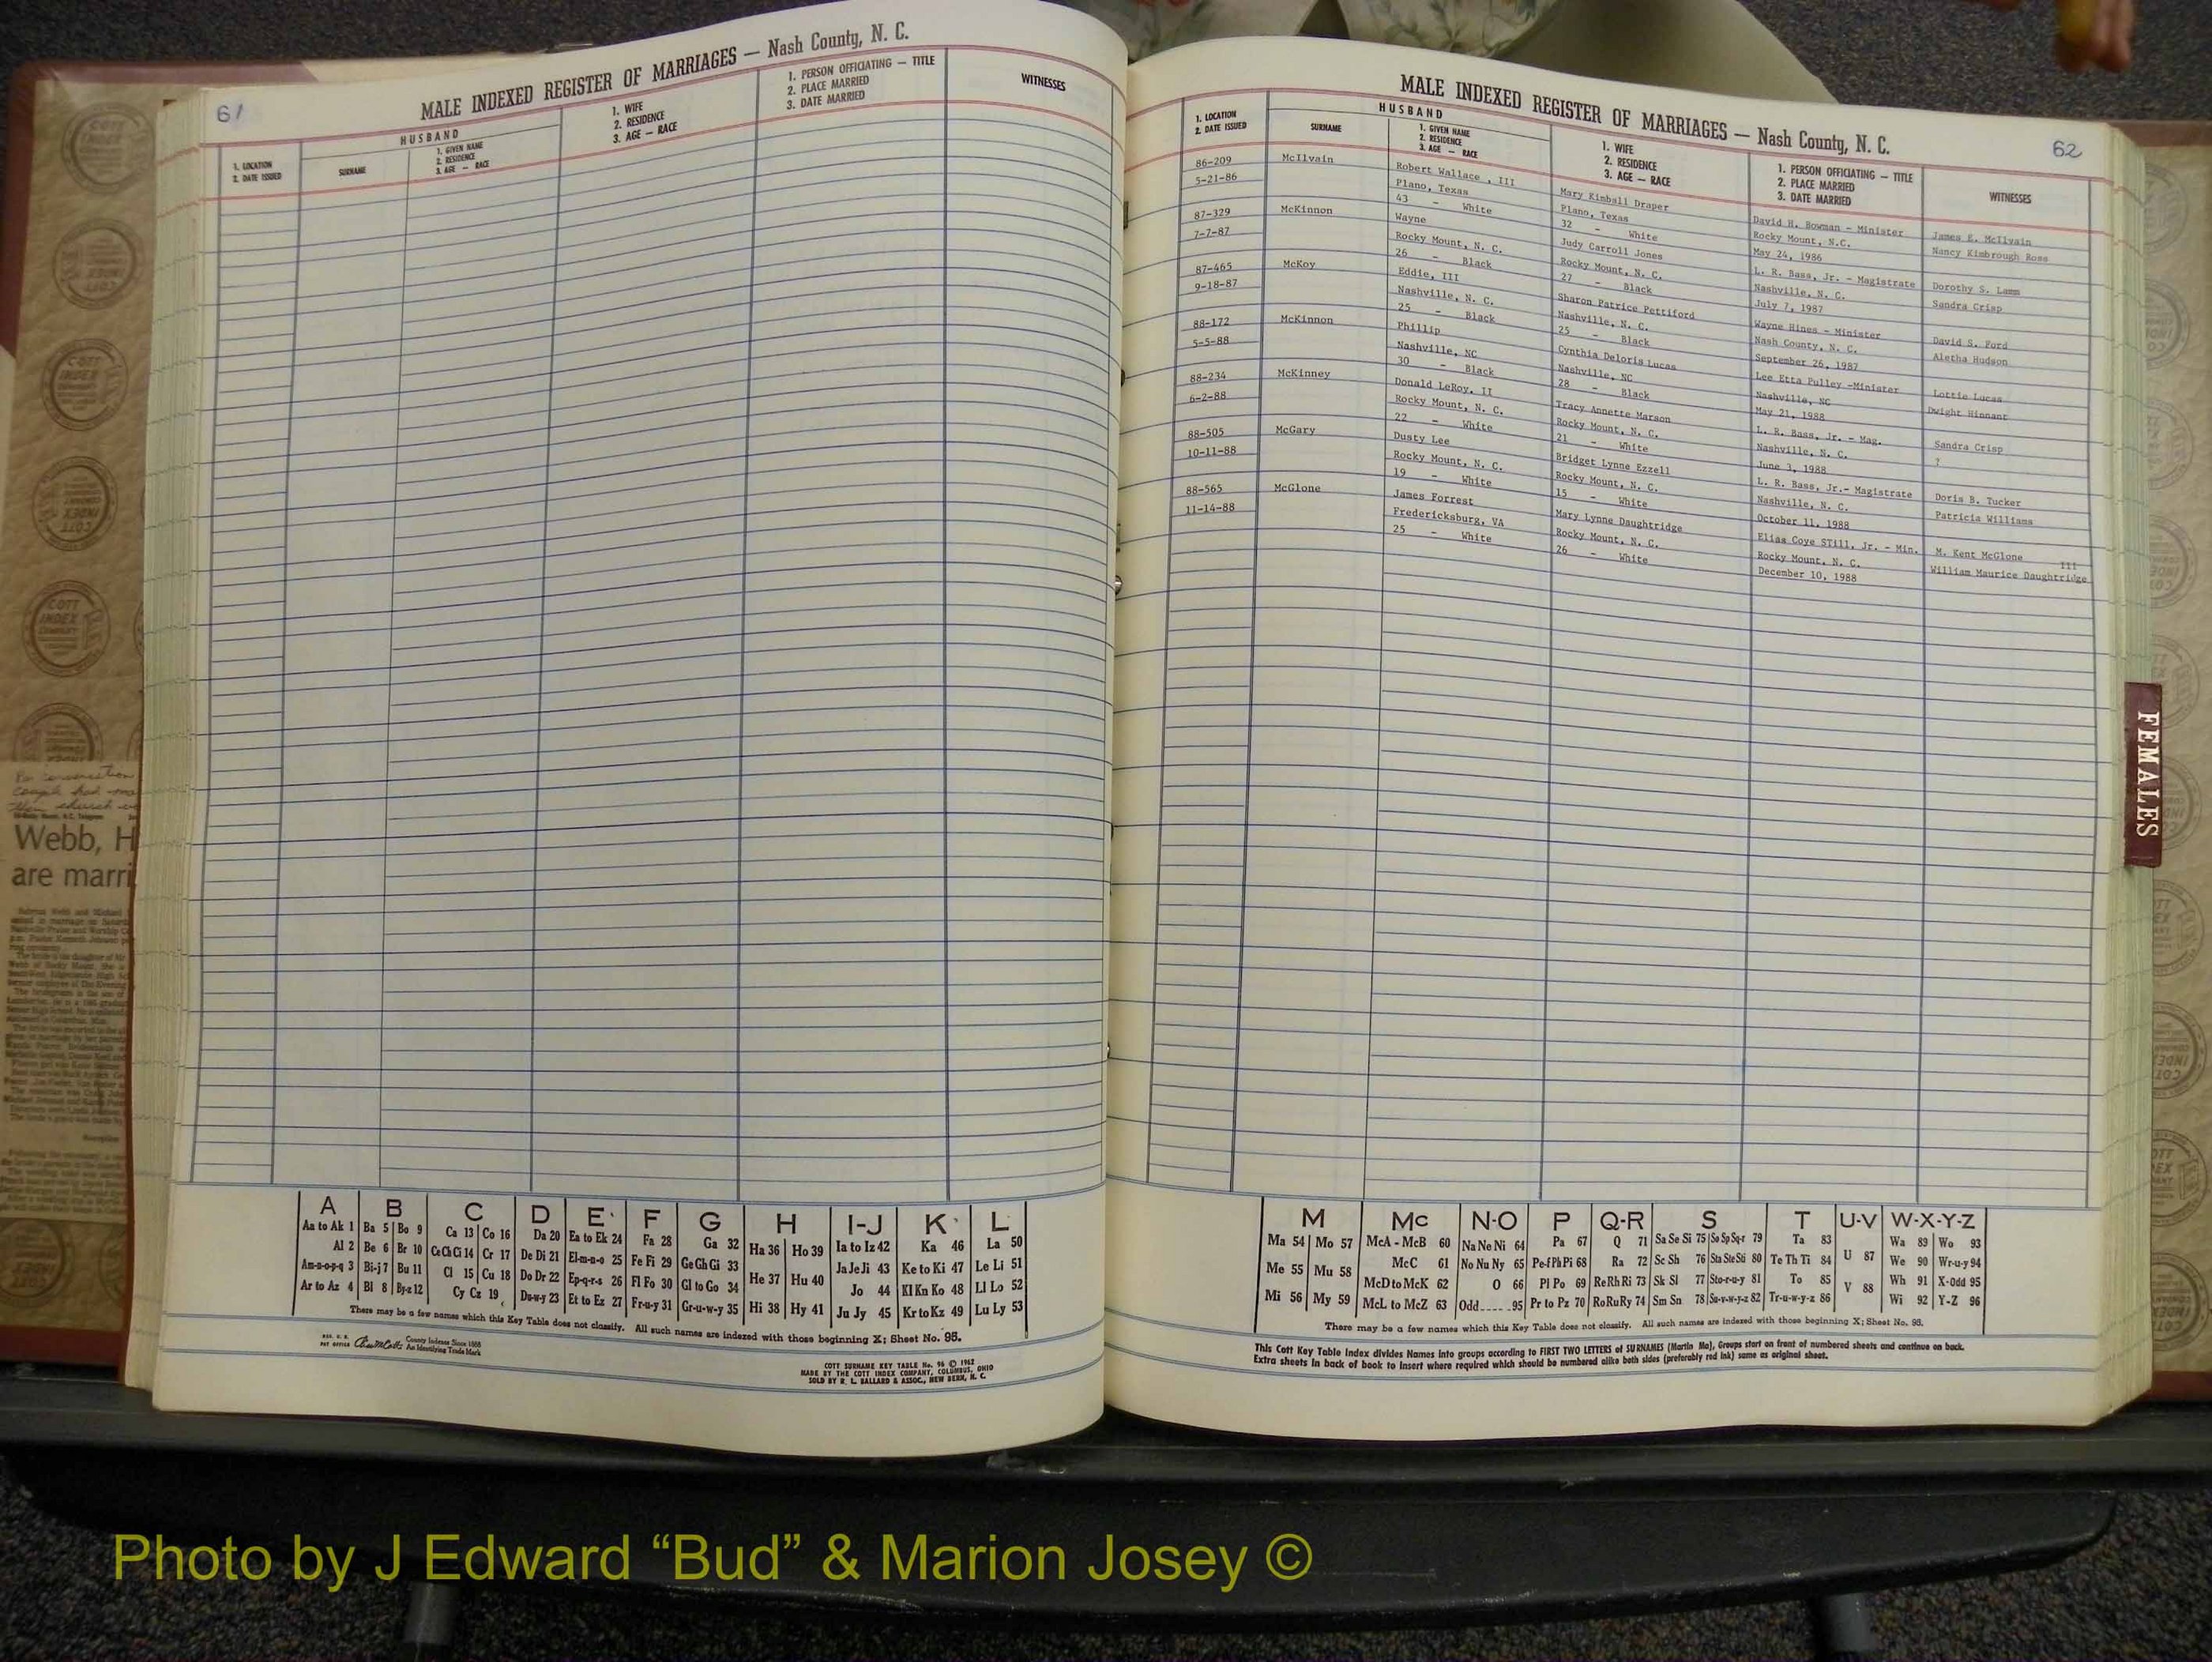 61
MALE INDEXED REGISTER OF MARRIAGES — Nash County, N. C.
1. LOCATION
2. DATE ISSUED
HUSBAND
SURNAME
1. GIVEN NAME
2. RESIDENCE
3. AGE — RACE
1. WIFE
2. RESIDENCE
3. AGE — RACE
1. PERSON OFFICIATING — TITLE
2. PLACE MARRIED
3. DATE MARRIED
WITNESSES
A B C D E F G H I-J K L
Aa to Ak 1 Ba 5 Bo 9 Ca 13 Co 16 Da 20 Ea to Ek 24 Fa 28 Ga 32 Ha 36 Ho 39 Ia to Iz 42 Ka 46 La 50
Al 2 Be 6 Br 10 Ce Ch Ci 14 Cr 17 De Di 21 El-m-n-o 25 Fe Fi 29 Ge Gh Gi 33 Ja Je Ji 43 Ke to Ki 47 Le Li 51
Am-n-o-p-q 3 Bi-j 7 Bu 11 Cl 15 Cu 18 Do Dr 22 Ep-q-r-s 26 Fl Fo 30 Gl to Go 34 He 37 Hu 40 Jo 44 Kl Kn Ko 48 Ll Lo 52
Ar to Az 4 Bl 8 By-z 12 Cy Cz 19 Du-w-y 23 Et to Ez 27 Fr-u-y 31 Gr-u-w-y 35 Hi 38 Hy 41 Ju Jy 45 Kr to Kz 49 Lu Ly 53
There may be a few names which this Key Table does not classify. All such names are indexed with those beginning X; Sheet No. 95.
County Indexes Since 1888
An Identifying Trade Mark
COTT SURNAME KEY TABLE No. 96 © 1962
MADE BY THE COTT INDEX COMPANY, COLUMBUS, OHIO
SOLD BY R. L. BALLARD & ASSOC., NEW BERN, N. C.
MALE INDEXED REGISTER OF MARRIAGES — Nash County, N. C.
62
1. LOCATION
2. DATE ISSUED
HUSBAND
SURNAME
1. GIVEN NAME
2. RESIDENCE
3. AGE — RACE
1. WIFE
2. RESIDENCE
3. AGE — RACE
1. PERSON OFFICIATING — TITLE
2. PLACE MARRIED
3. DATE MARRIED
WITNESSES
86-209 McIlvain Robert Wallace , III Mary Kimball Draper David H. Bowman - Minister James E. McIlvain
5-21-86 Plano, Texas Plano, Texas Rocky Mount, N.C. Nancy Kimbrough Ross
43 - White 32 - White May 24, 1986
87-329 McKinnon Wayne Judy Carroll Jones L. R. Bass, Jr. - Magistrate Dorothy S. Lamm
7-7-87 Rocky Mount, N. C. Rocky Mount, N. C. Nashville, N. C. Sandra Crisp
26 - Black 27 - Black July 7, 1987
87-465 McKoy Eddie, III Sharon Patrice Pettiford Wayne Hines - Minister David S. Ford
9-18-87 Nashville, N. C. Nashville, N. C. Nash County, N. C. Aletha Hudson
25 - Black 25 - Black September 26, 1987
88-172 McKinnon Phillip Cynthia Deloris Lucas Lee Etta Pulley -Minister Lottie Lucas
5-5-88 Nashville, NC Nashville, NC Nashville, NC Dwight Hinnant
30 - Black 28 - Black May 21, 1988
88-234 McKinney Donald LeRoy, II Tracy Annette Marson L. R. Bass, Jr. - Mag. Sandra Crisp
6-2-88 Rocky Mount, N. C. Rocky Mount, N. C. Nashville, N. C. ?
22 - White 21 - White June 3, 1988
88-505 McGary Dusty Lee Bridget Lynne Ezzell L. R. Bass, Jr.- Magistrate Doris B. Tucker
10-11-88 Rocky Mount, N. C. Rocky Mount, N. C. Nashville, N. C. Patricia Williams
19 - White 15 - White October 11, 1988
88-565 McGlone James Forrest Mary Lynne Daughtridge Elias Coye STill, Jr. - Min. M. Kent McGlone
11-14-88 Fredericksburg, VA Rocky Mount, N. C. Rocky Mount, N. C. William Maurice Daughtridge III
25 - White 26 - White December 10, 1988
M Mc N-O P Q-R S T U-V W-X-Y-Z
Ma 54 Mo 57 McA - McB 60 Na Ne Ni 64 Pa 67 Q 71 Sa Se Si 75 So Sp Sq-r 79 Ta 83 Wa 89 Wo 93
Me 55 Mu 58 McC 61 No Nu Ny 65 Pe-f Ph Pi 68 Ra 72 Sc Sh 76 Sta Ste Sti 80 Te Th Ti 84 U 87 We 90 Wr-u-y 94
McD to McK 62 O 66 Pl Po 69 Re Rh Ri 73 Sk Sl 77 Sto-r-u-y 81 To 85 V 88 Wh 91 X-Odd 95
Mi 56 My 59 McL to McZ 63 Odd 95 Pr to Pz 70 Ro Ru Ry 74 Sm Sn 78 Su-v-w-y-z 82 Tr-u-w-y-z 86 Wi 92 Y-Z 96
There may be a few names which this Key Table does not classify. All such names are indexed with those beginning X; Sheet No. 95.
This Cott Key Table Index divides Names into groups according to FIRST TWO LETTERS of SURNAMES (Martin Ma), Groups start on front of numbered sheets and continue on back.
Extra sheets in back of book to insert where required which should be numbered alike both sides (preferably red ink) same as original sheet.
FEMALES
COTT INDEX COMPANY
Webb, H
are marri
Photo by J Edward “Bud” & Marion Josey ©